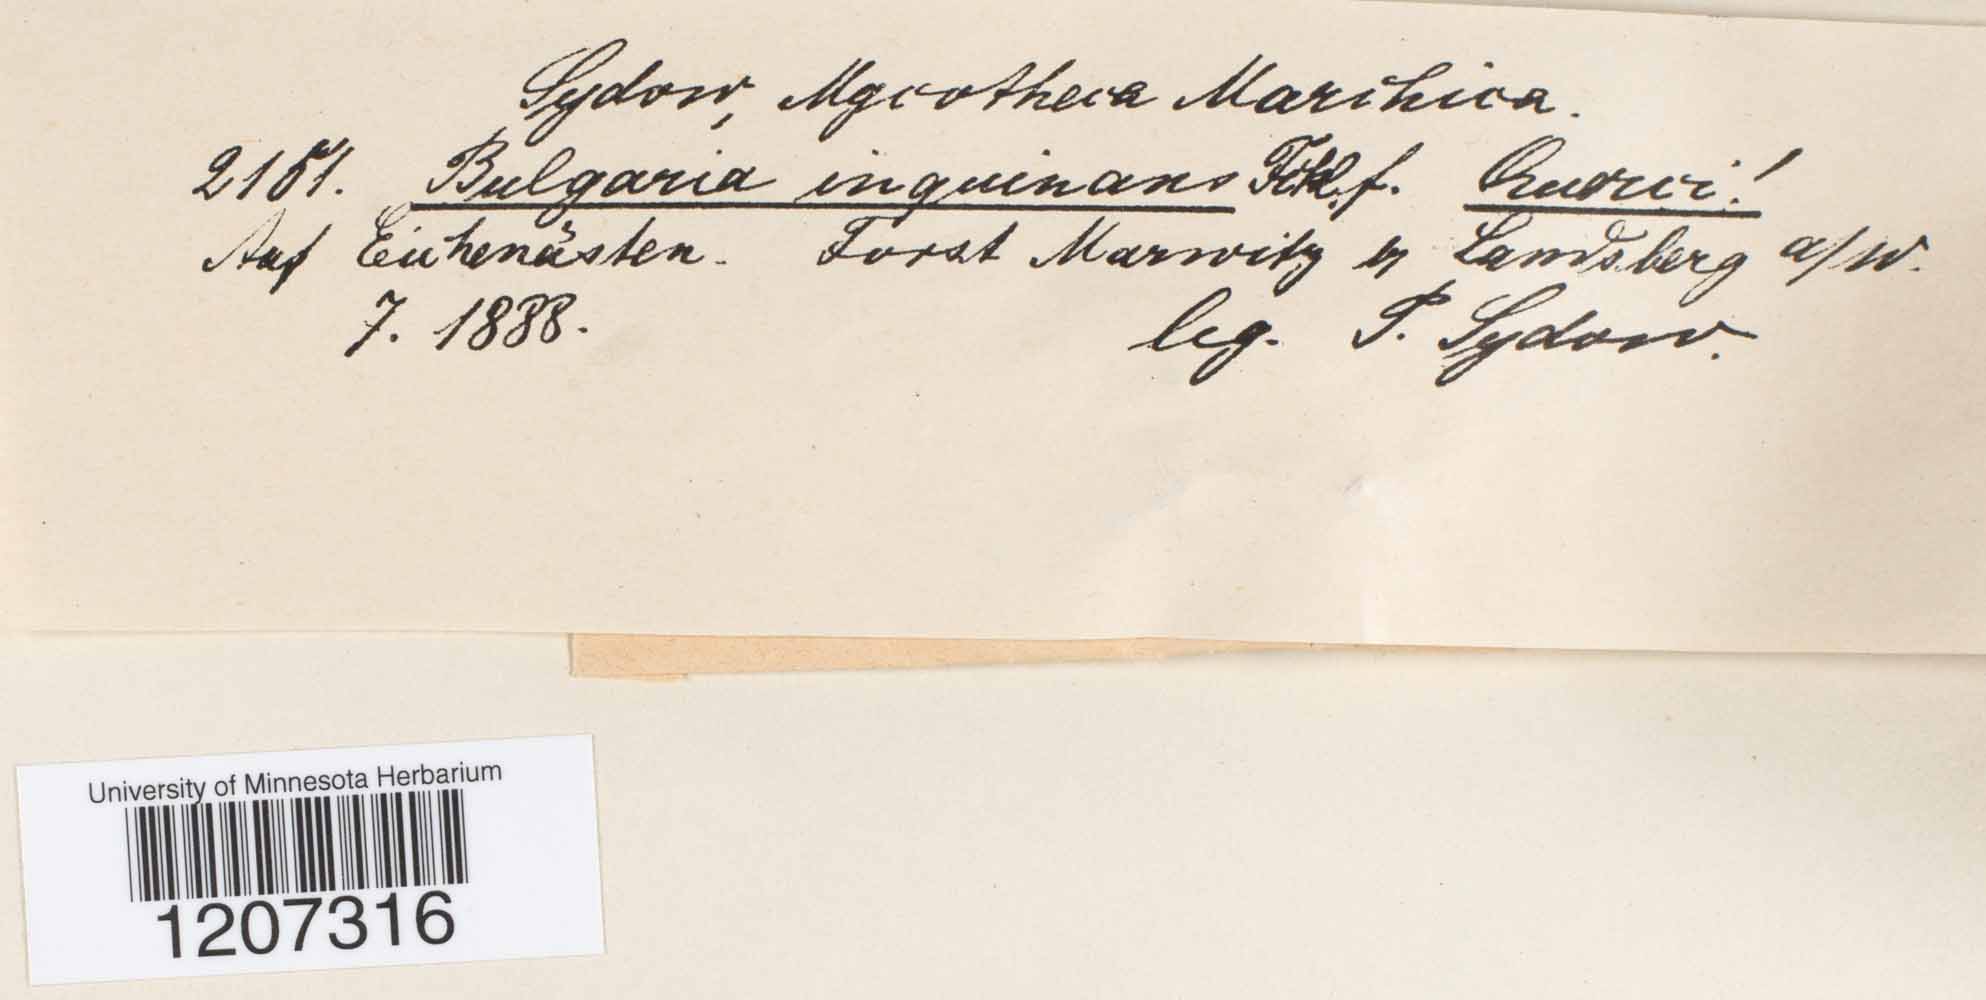 Sydow, Mycotheca Marchica.
2151. Bulgaria inquinans Fckl. f. Querci!
Auf Eichenästen. Forst Marwitz b Landsberg a/W.
7. 1888. leg. P. Sydow.
University of Minnesota Herbarium
1207316